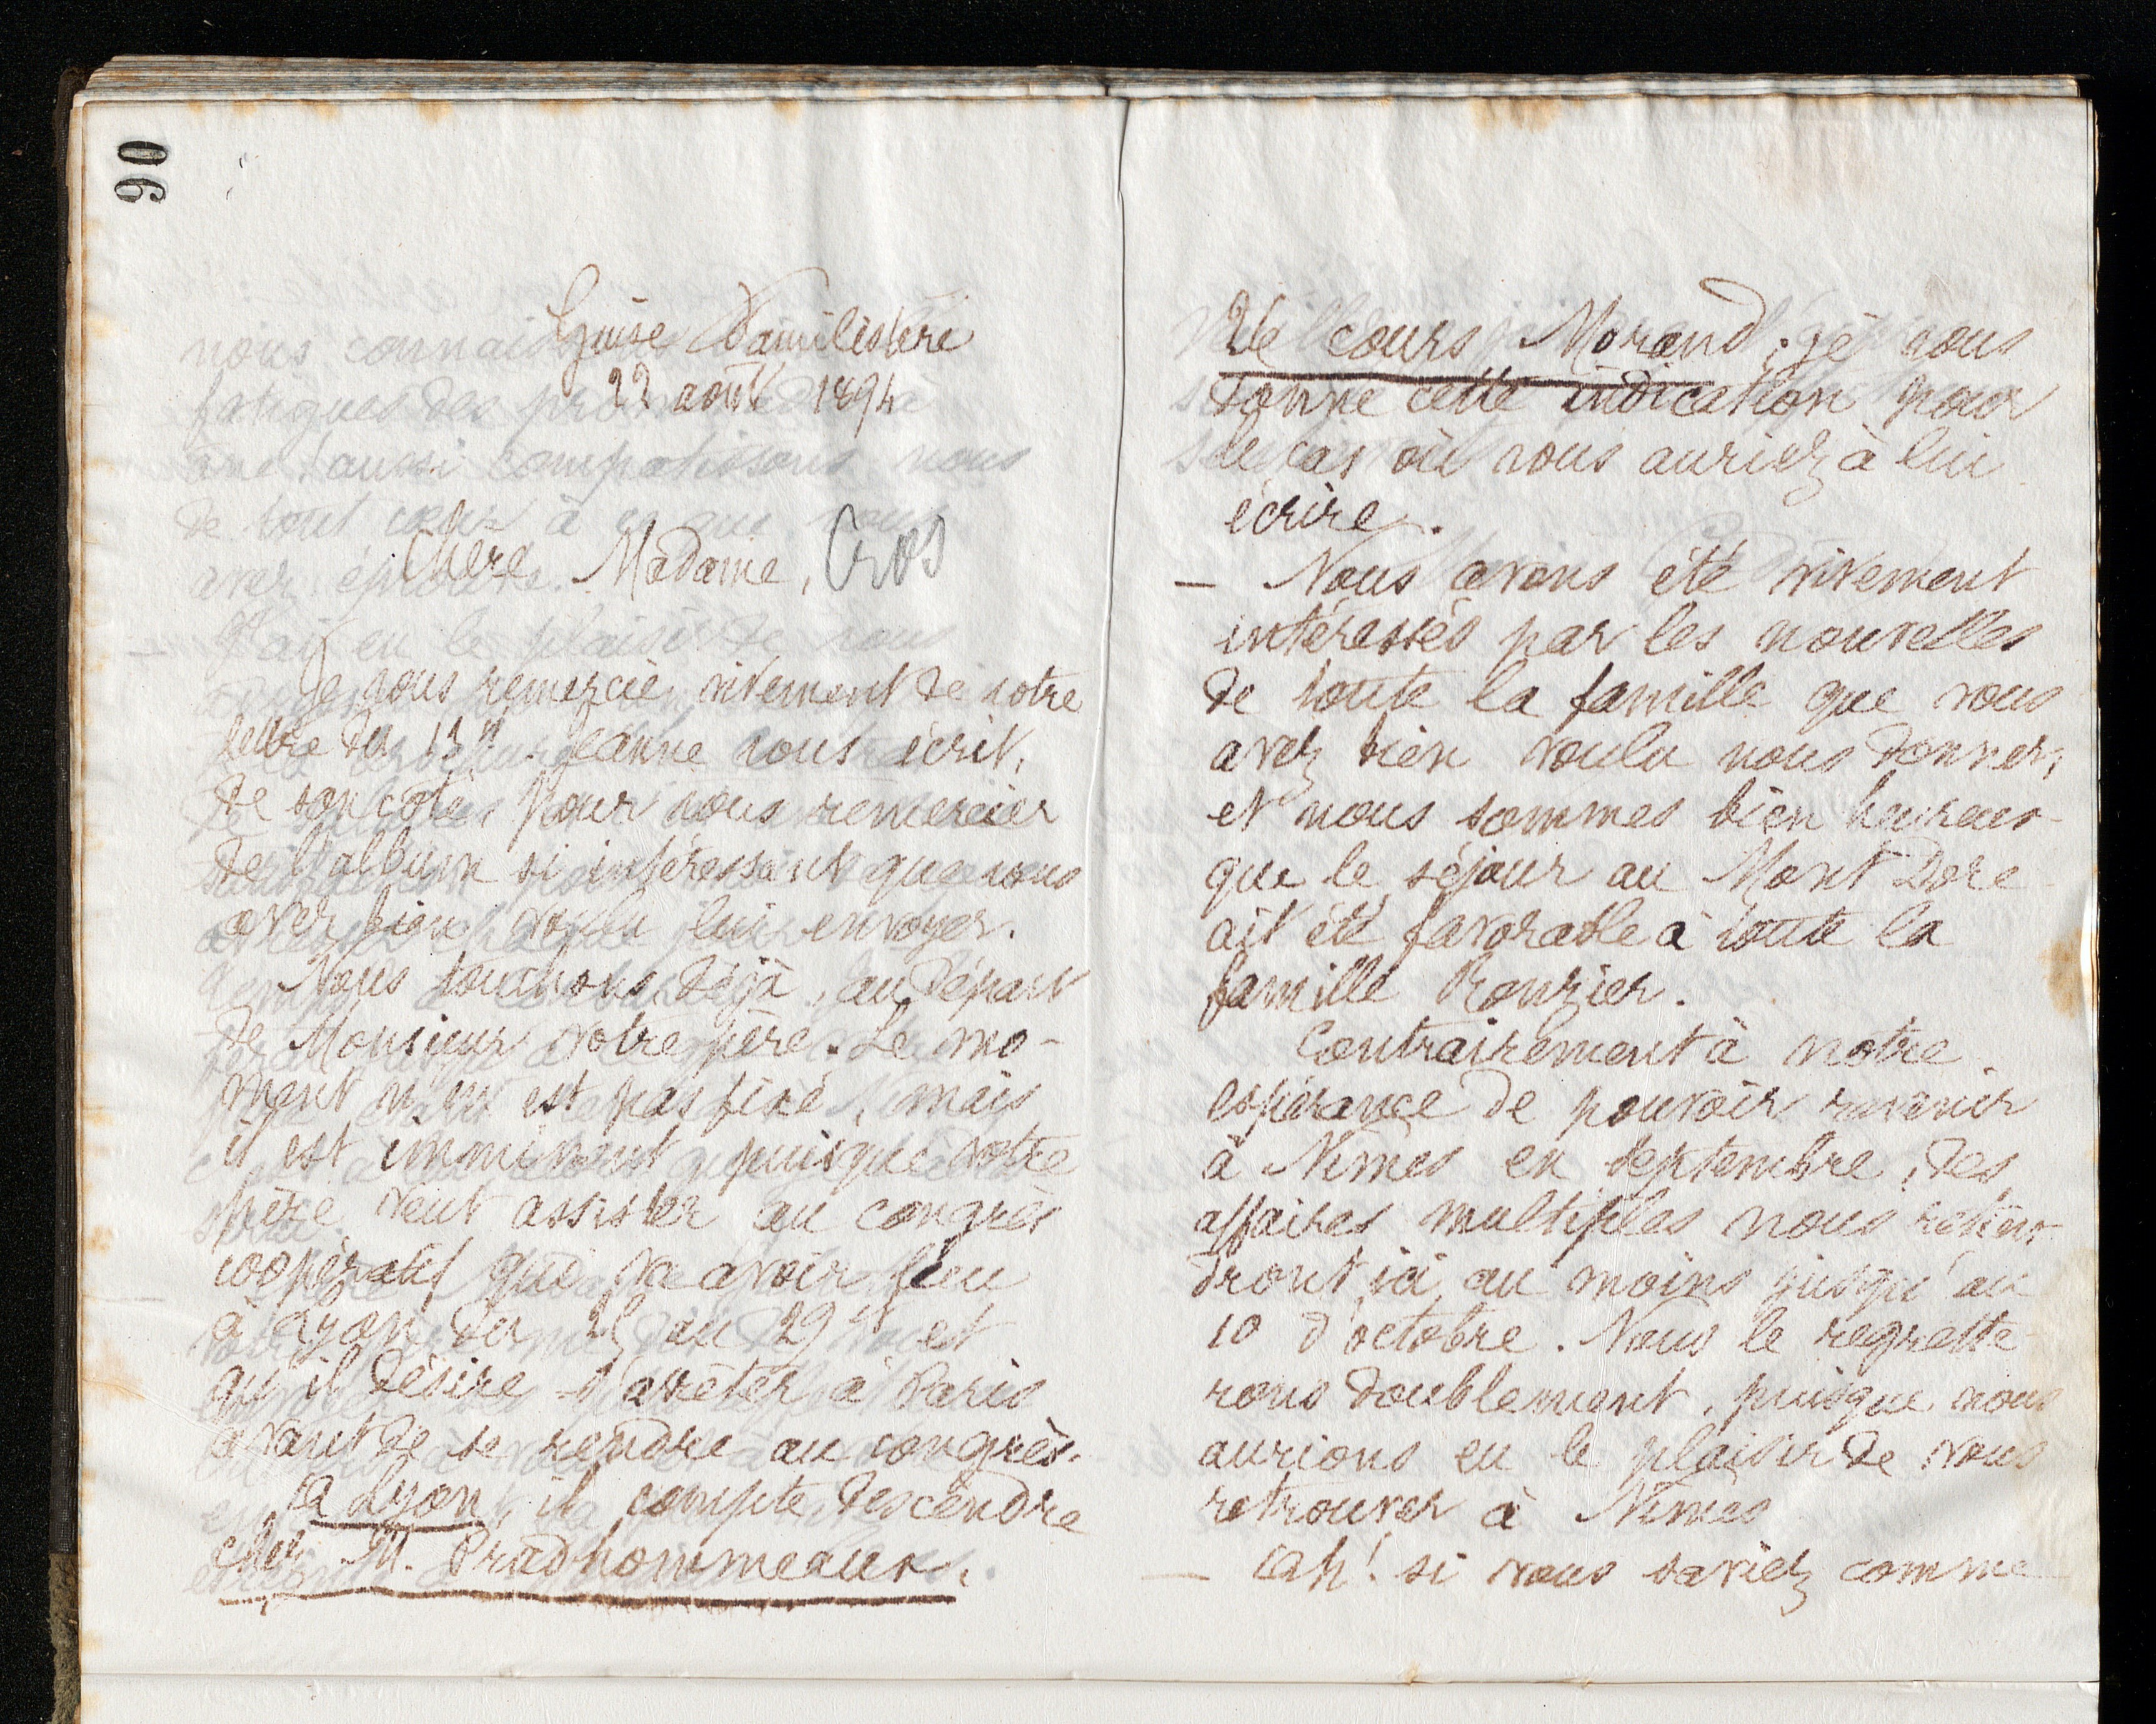 90
Guise Familistère
22 août 1894
Chère Madame, Cros
Je vous remercie vivement de votre
lettre du 12 ct. Jeanne vous écrit,
de son côté, pour vous remercier
de l'album si intéressant que vous
avez bien voulu lui envoyer.
Nous touchons déjà, au départ
de Monsieur votre père. Le mo-
ment n'en est pas fixé, mais
il est imminent puisque votre
père veut assister au congrès
coopératif qui va avoir lieu
à Lyon du au 29 et
qu'il désire s'arrêter à Paris
avant de se rendre au congrès.
A Lyon, il compte descendre
chez M. Prudhommeaux,
cours Morand; je vous
donne cette indication pour
le cas où vous auriez à lui
écrire.
— Nous avons été vivement
intéressés par les nouvelles
de toute la famille que vous
avez bien voulu nous donner,
et nous sommes bien heureux
que le séjour au Mont Dore
ait été favorable à toute la
famille Rouzier.
Contrairement à notre
espérance de pouvoir revenir
à Nîmes en septembre, des
affaires multiples nous retien-
dront ici au moins jusqu'au
10 d'octobre. Nous le regrette-
rons doublement, puisque nous
aurions eu le plaisir de vous
retrouver à Nîmes
— Ah! si vous saviez comme